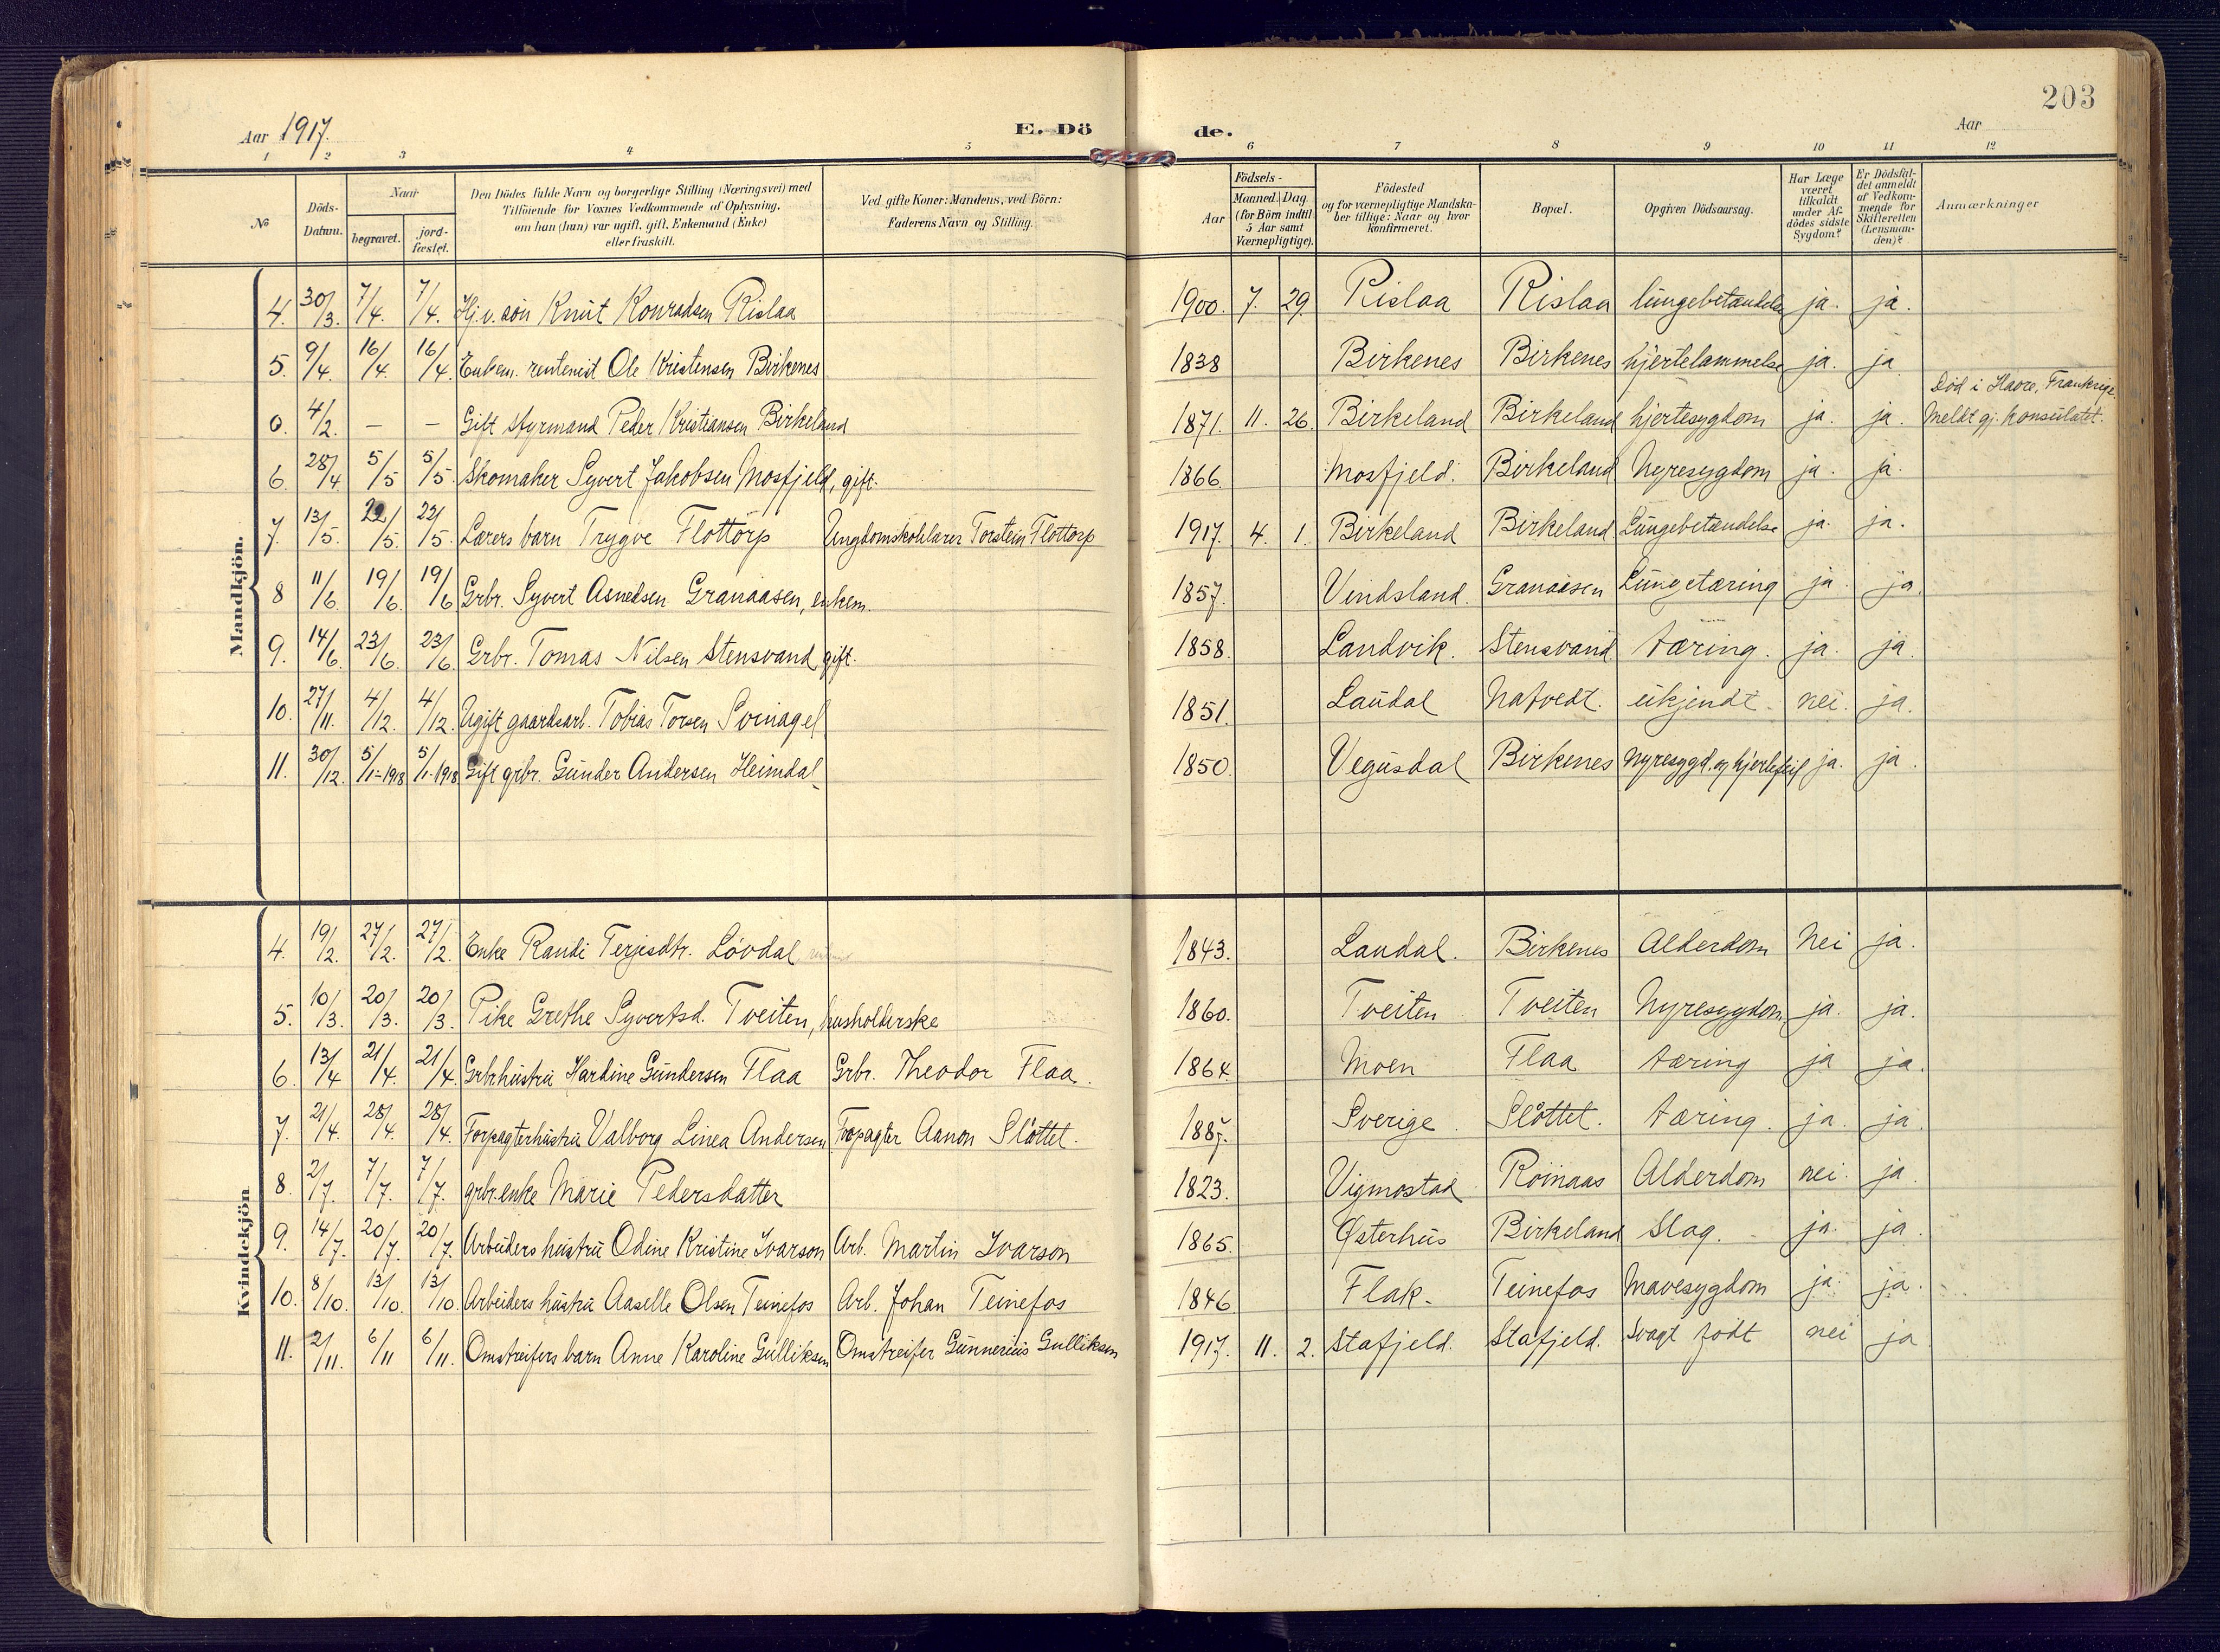 203
Aar 1917. E. Dö de. Aar
1 2 3 4 5 6 7 8 9 10 11 12
№
Döds-Datum.
Naar
begravet.
jord-fæstet.
Den Dödes fulde Navn og borgerlige Stilling (Næringsvei) med
Tilföiende for Voxnes Vedkommende af Oplysning,
om han (hun) var ugift, gift, Enkemand (Enke)
eller fraskilt.
Ved gifte Koner: Mandens, ved Börn:
Faderens Navn og Stilling.
Födsels-
Aar
Maaned. Dag
(for Börn indtil
5 Aar samt
Værnepligtige).
Födested
og for værnepligtige Mandska-
ber tillige: Naar og hvor
konfirmeret.
Bopæl.
Opgiven Dödsaarsag.
Har Læge
været
tilkaldt
under Af-
dödes sidste
Sygdom?
Er Dödsfal-
det anmeldt
af Vedkom-
mende for
Skifteretten
(Lensman-
den)?
Anmærkninger
Mandkjön.
4. 30/3. 7/4. 7/4. Hj.v. sön Knut Konradsen Rislaa 1900. 7. 29. Rislaa Rislaa lungebetændelse ja. ja.
5. 9/4. 16/4. 16/4. Enkem. rentenist Ole Kristensen Birkenes 1838 Birkenes Birkenes hjertelammelse ja. ja
0. 4/2. – – Gift styrmand Peder Kristiansen Birkeland 1871. 11. 26. Birkeland Birkeland hjertesygdom ja. ja. Död i Havre, Frankrige. Meldt gj. konsulatet.
6. 28/4. 5/5 5/5. Skomaker Syvert Jakobsen Mosfjeld, gift. 1866. Mosfjeld. Birkeland Nyresygdom ja. ja.
7. 13/5. 22/5. 22/5. Lærers barn Trygve Flottorp Ungdomskolelærer Torstein Flottorp 1917. 4. 1. Birkeland Birkeland Lungebetændelse ja. ja.
8 11/6. 19/6. 19/6 Grbr. Syvert Asnedsen Granaasen, enkem. 1857. Vindsland. Granaasen Lungetæring ja ja.
9. 14/6. 23/6. 23/6. Grbr. Tomas Nilsen Stensvand, gift. 1858. Landvik. Stensvand. tæring. ja. ja.
10. 27/11. 4/12. 4/12. Ugift gaardsarb. Tobias Torsen Svinagel 1851. Laudal Natvedt. ukjendt. nei. ja.
11. 30/12. 5/1-1918 5/1-1918 Gift grbr. Gunder Andersen Heimdal 1850. Vegusdal Birkenes Nyresygd. og hjertefeil ja. ja.
Kvindekjön
4. 19/2. 27/2. 27/2. Enke Randi Terjesdtr. Lövdal 1843. Laudal. Birkenes Alderdom Nei ja.
5. 10/3. 20/3. 20/3. Pike Grethe Syvertsd. Tveiten, husholderske 1860. Tveiten Tveiten Nyresygdom ja. ja.
6. 13/4 21/4. 21/4. Grbr.hustru Hardine Gundersen Flaa Grbr. Theodor Flaa. 1864. Moen Flaa tæring ja ja.
7. 21/4. 28/4. 28/4. Forpagterhustru Valborg Linea Andersen Forpagter Aanon Slottet. 1887. Sverige. Slottet. tæring. ja. ja.
8. 2/7. 7/7. 7/7. grbr.enke Marie Pedersdatter 1823. Vigmostad Röinaas Alderdom nei. ja.
9. 14/7. 20/7. 20/7. Arbeiders hustru Odine Kristine Ivarson Arb. Martin Ivarson 1865. Østerhus Birkeland Slag. ja. ja.
10. 8/10. 13/10. 13/10. Arbeiders hustru Aaselle Olsen Teinefos Arb. Johan Teinefos 1846 Flak. Teinefos Mavesygdom ja. ja.
11. 2/11. 6/11 6/11. Omstreifers barn Anne Karoline Gulliksen Omstreifer Gunnerius Gulliksen 1917. 11. 2. Stafjeld. Stafjeld. Svagt födt nei ja